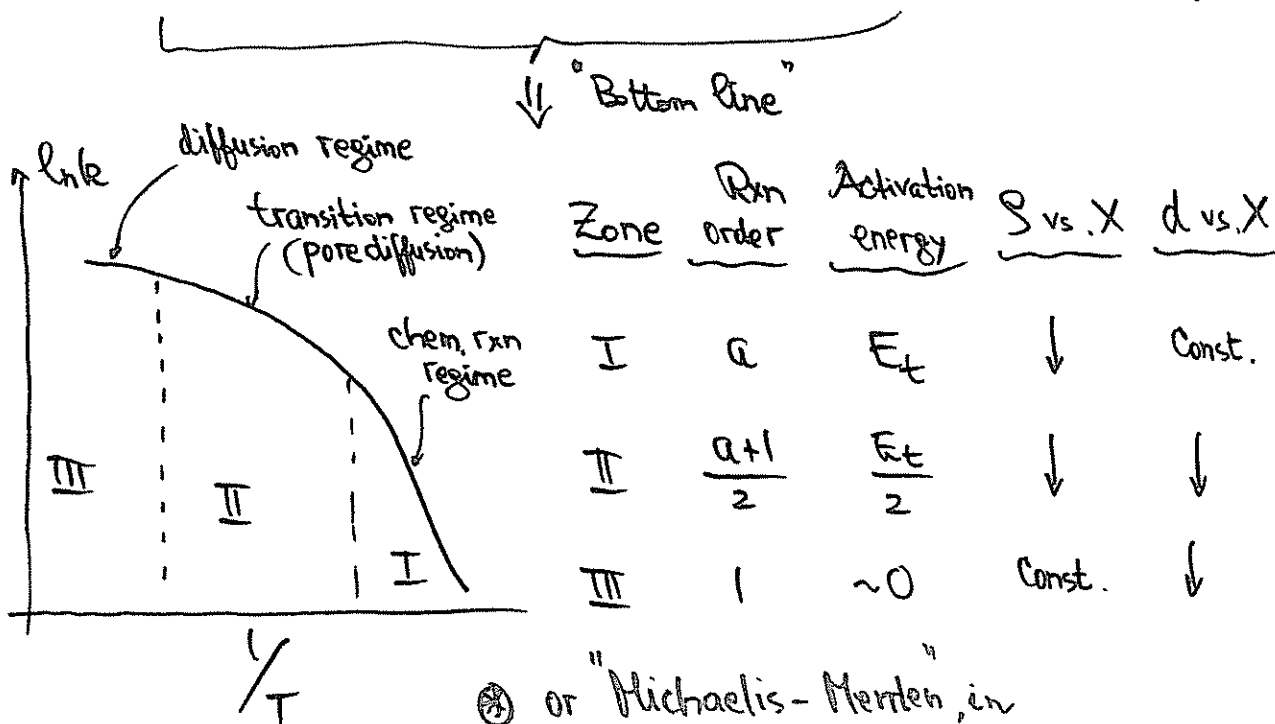 "Bottom line"
ln k
diffusion regime
transition regime
(pore diffusion)
chem. rxn
regime
III
II
I
1/T
Zone Rxn order Activation energy ρ vs. X d vs. X
I a E_t ↓ Const.
II a+1/2 E_t/2 ↓ ↓
III 1 ~0 Const. ↓
⊛ or "Michaelis-Menten", in